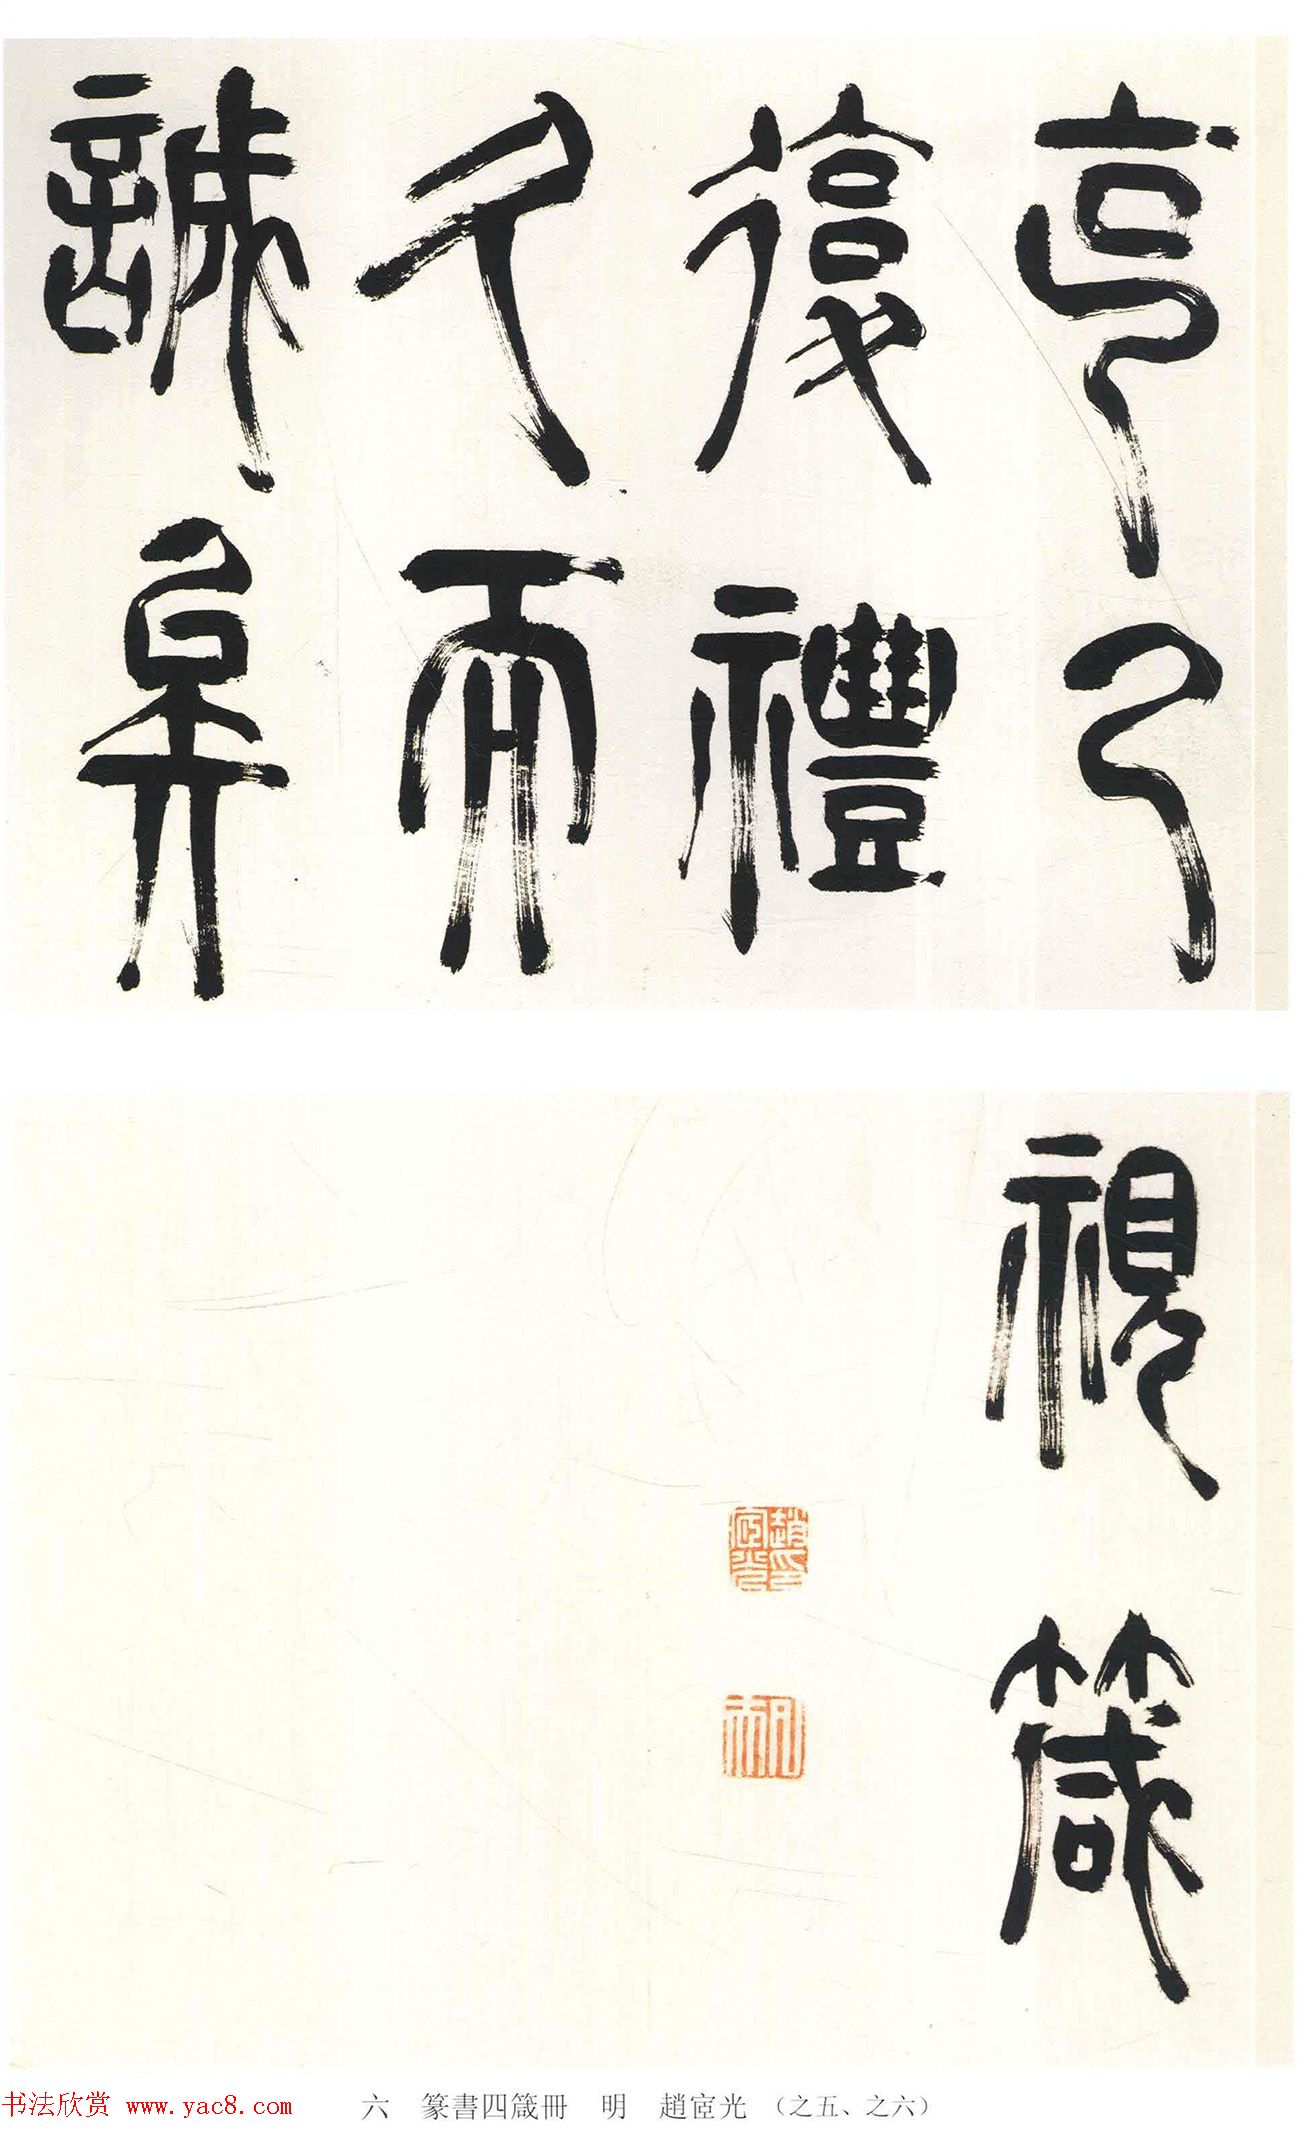 克己
復禮
久而
誠矣
視箴
趙宧光印
凡夫
书法欣赏 www.yac8.com
六 篆書四箴冊 明 趙宧光 (之五、之六)